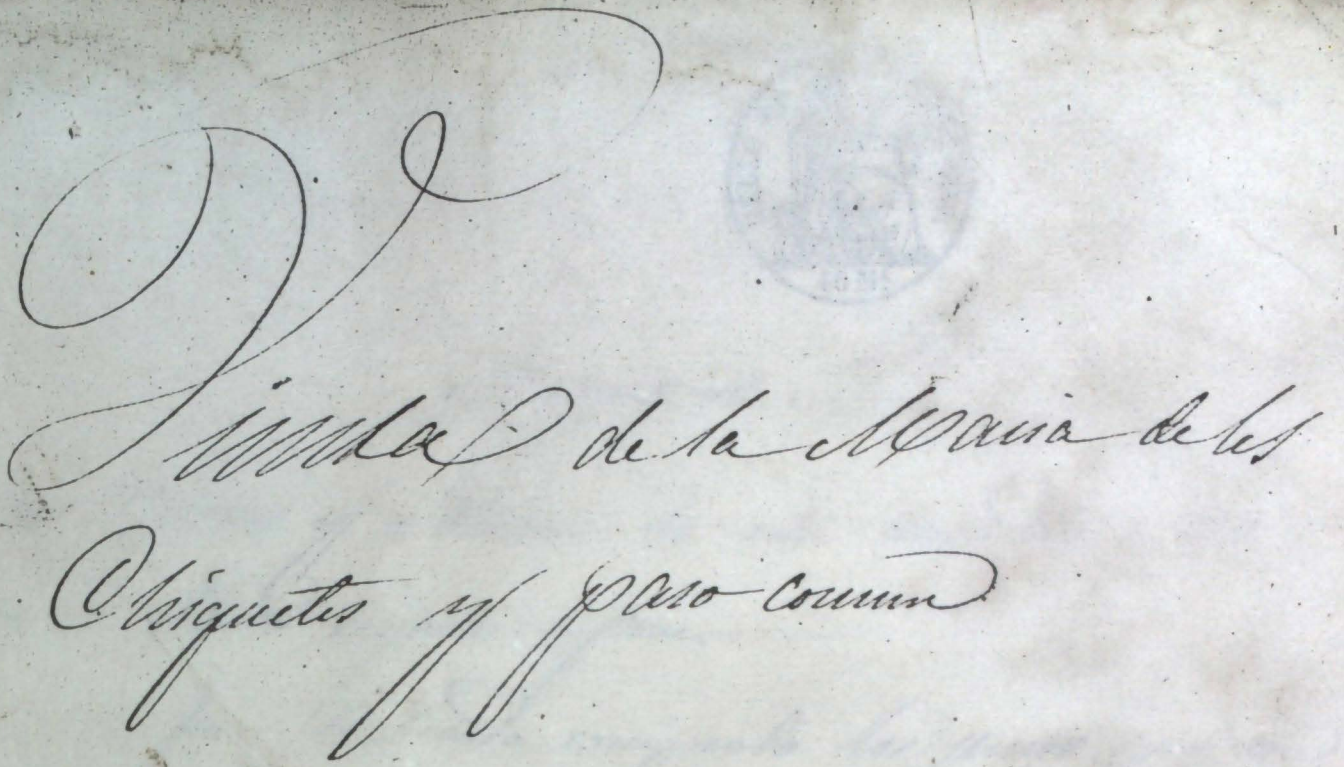 Viuda de la Maria de les
Chiquetes y paso comun